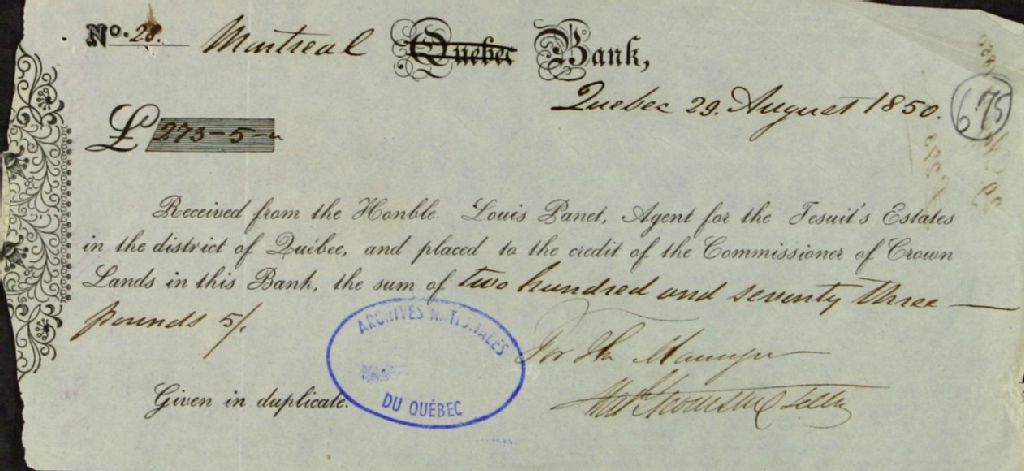 No. 28. Montreal Quebec Bank,
Quebec 29. August 1850.
675
£ 273-5-"
Received from the Honble. Louis Panet, Agent for the Jesuit's Estates
in the district of Québec, and placed to the credit of the Commissioner of Crown
Lands in this Bank, the sum of two hundred and seventy three —
pounds 5/.
For the Manager
Teller
Given in duplicate.
ARCHIVES NATIONALES
DU QUÉBEC